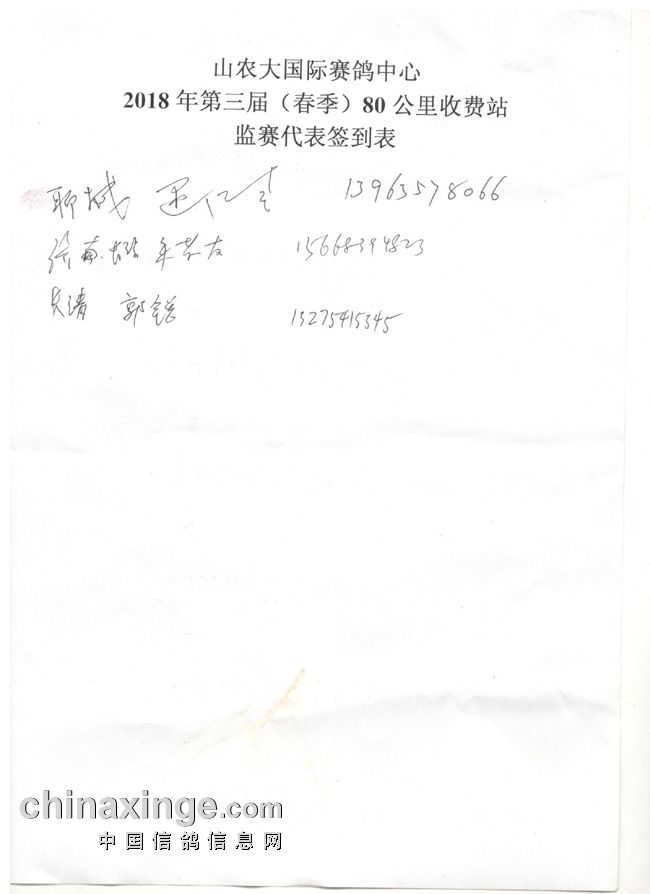 山农大国际赛鸽中心
2018 年第三届（春季）80 公里收费站
监赛代表签到表
聊城 13963578066
15668394823
郭 13275415345
chinaxinge.com
中国信鸽信息网